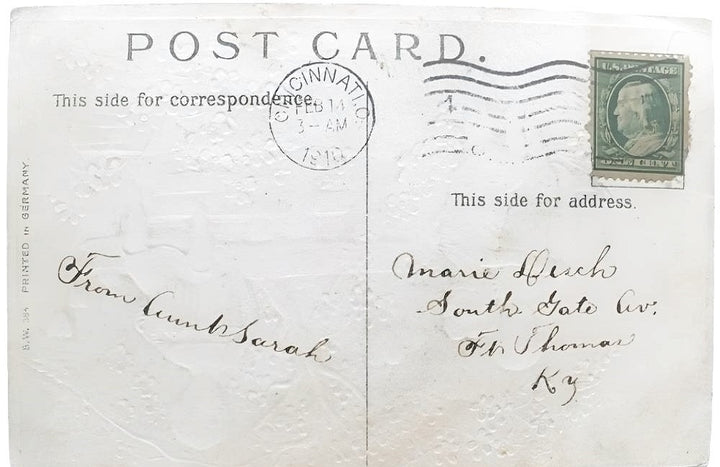 POST CARD.
This side for correspondence.
CINCINNATI, O.
FEB 14
3 - AM
1910
U.S. POSTAGE
ONE CENT
This side for address.
B.W. PRINTED IN GERMANY.
From Aunt Sarah
Marie
South Gate Av.
Ft Thomas
Ky